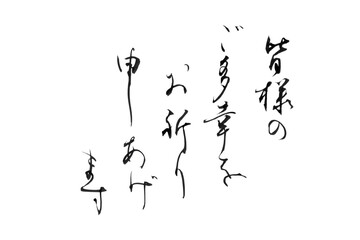 皆様の
ご多幸を
お祈り
申しあげ
ます